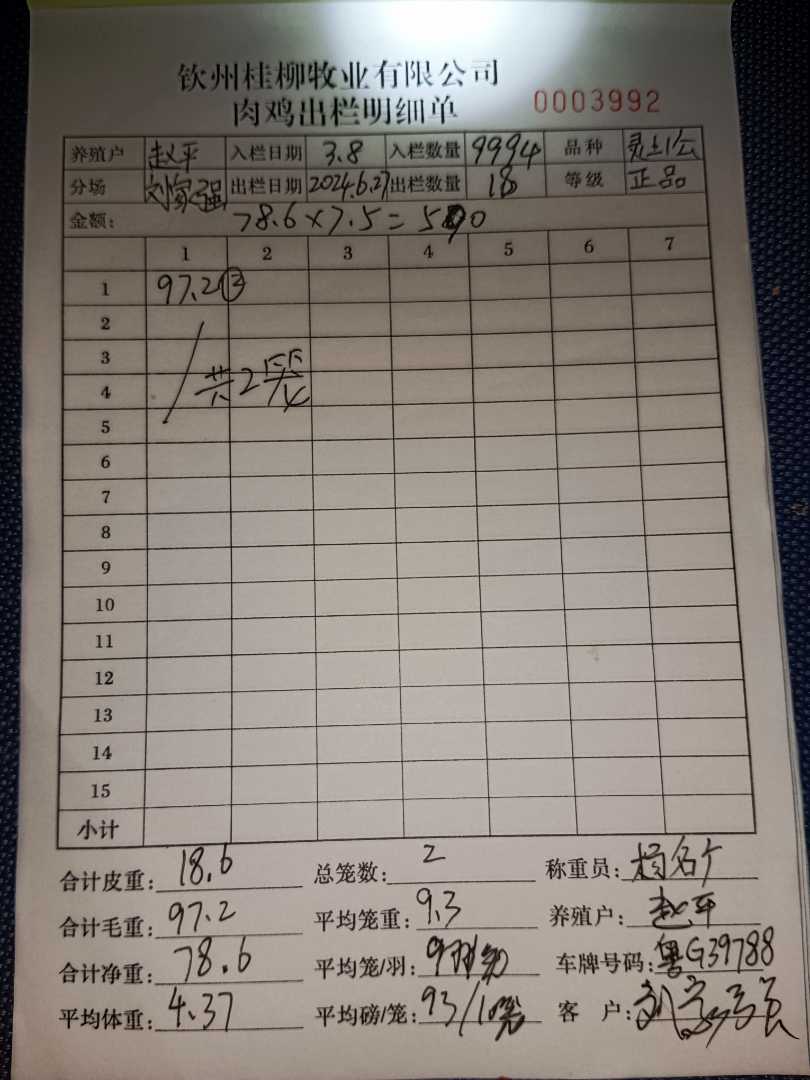 钦州桂柳牧业有限公司
肉鸡出栏明细单 0003992
养殖户 赵平 入栏日期 3.8 入栏数量 9994 品种 灵山公
分场 刘家强 出栏日期 2024.6.27 出栏数量 18 等级 正品
金额: 78.6×7.5=590
1 2 3 4 5 6 7
1 97.2②
2
3
4 共2笼
5
6
7
8
9
10
11
12
13
14
15
小计
合计皮重: 18.6 总笼数: 2 称重员:
合计毛重: 97.2 平均笼重: 9.3 养殖户: 赵平
合计净重: 78.6 平均笼/羽: 9 车牌号码: 粤G39788
平均体重: 4.37 平均磅/笼: 93/10笼 客户: